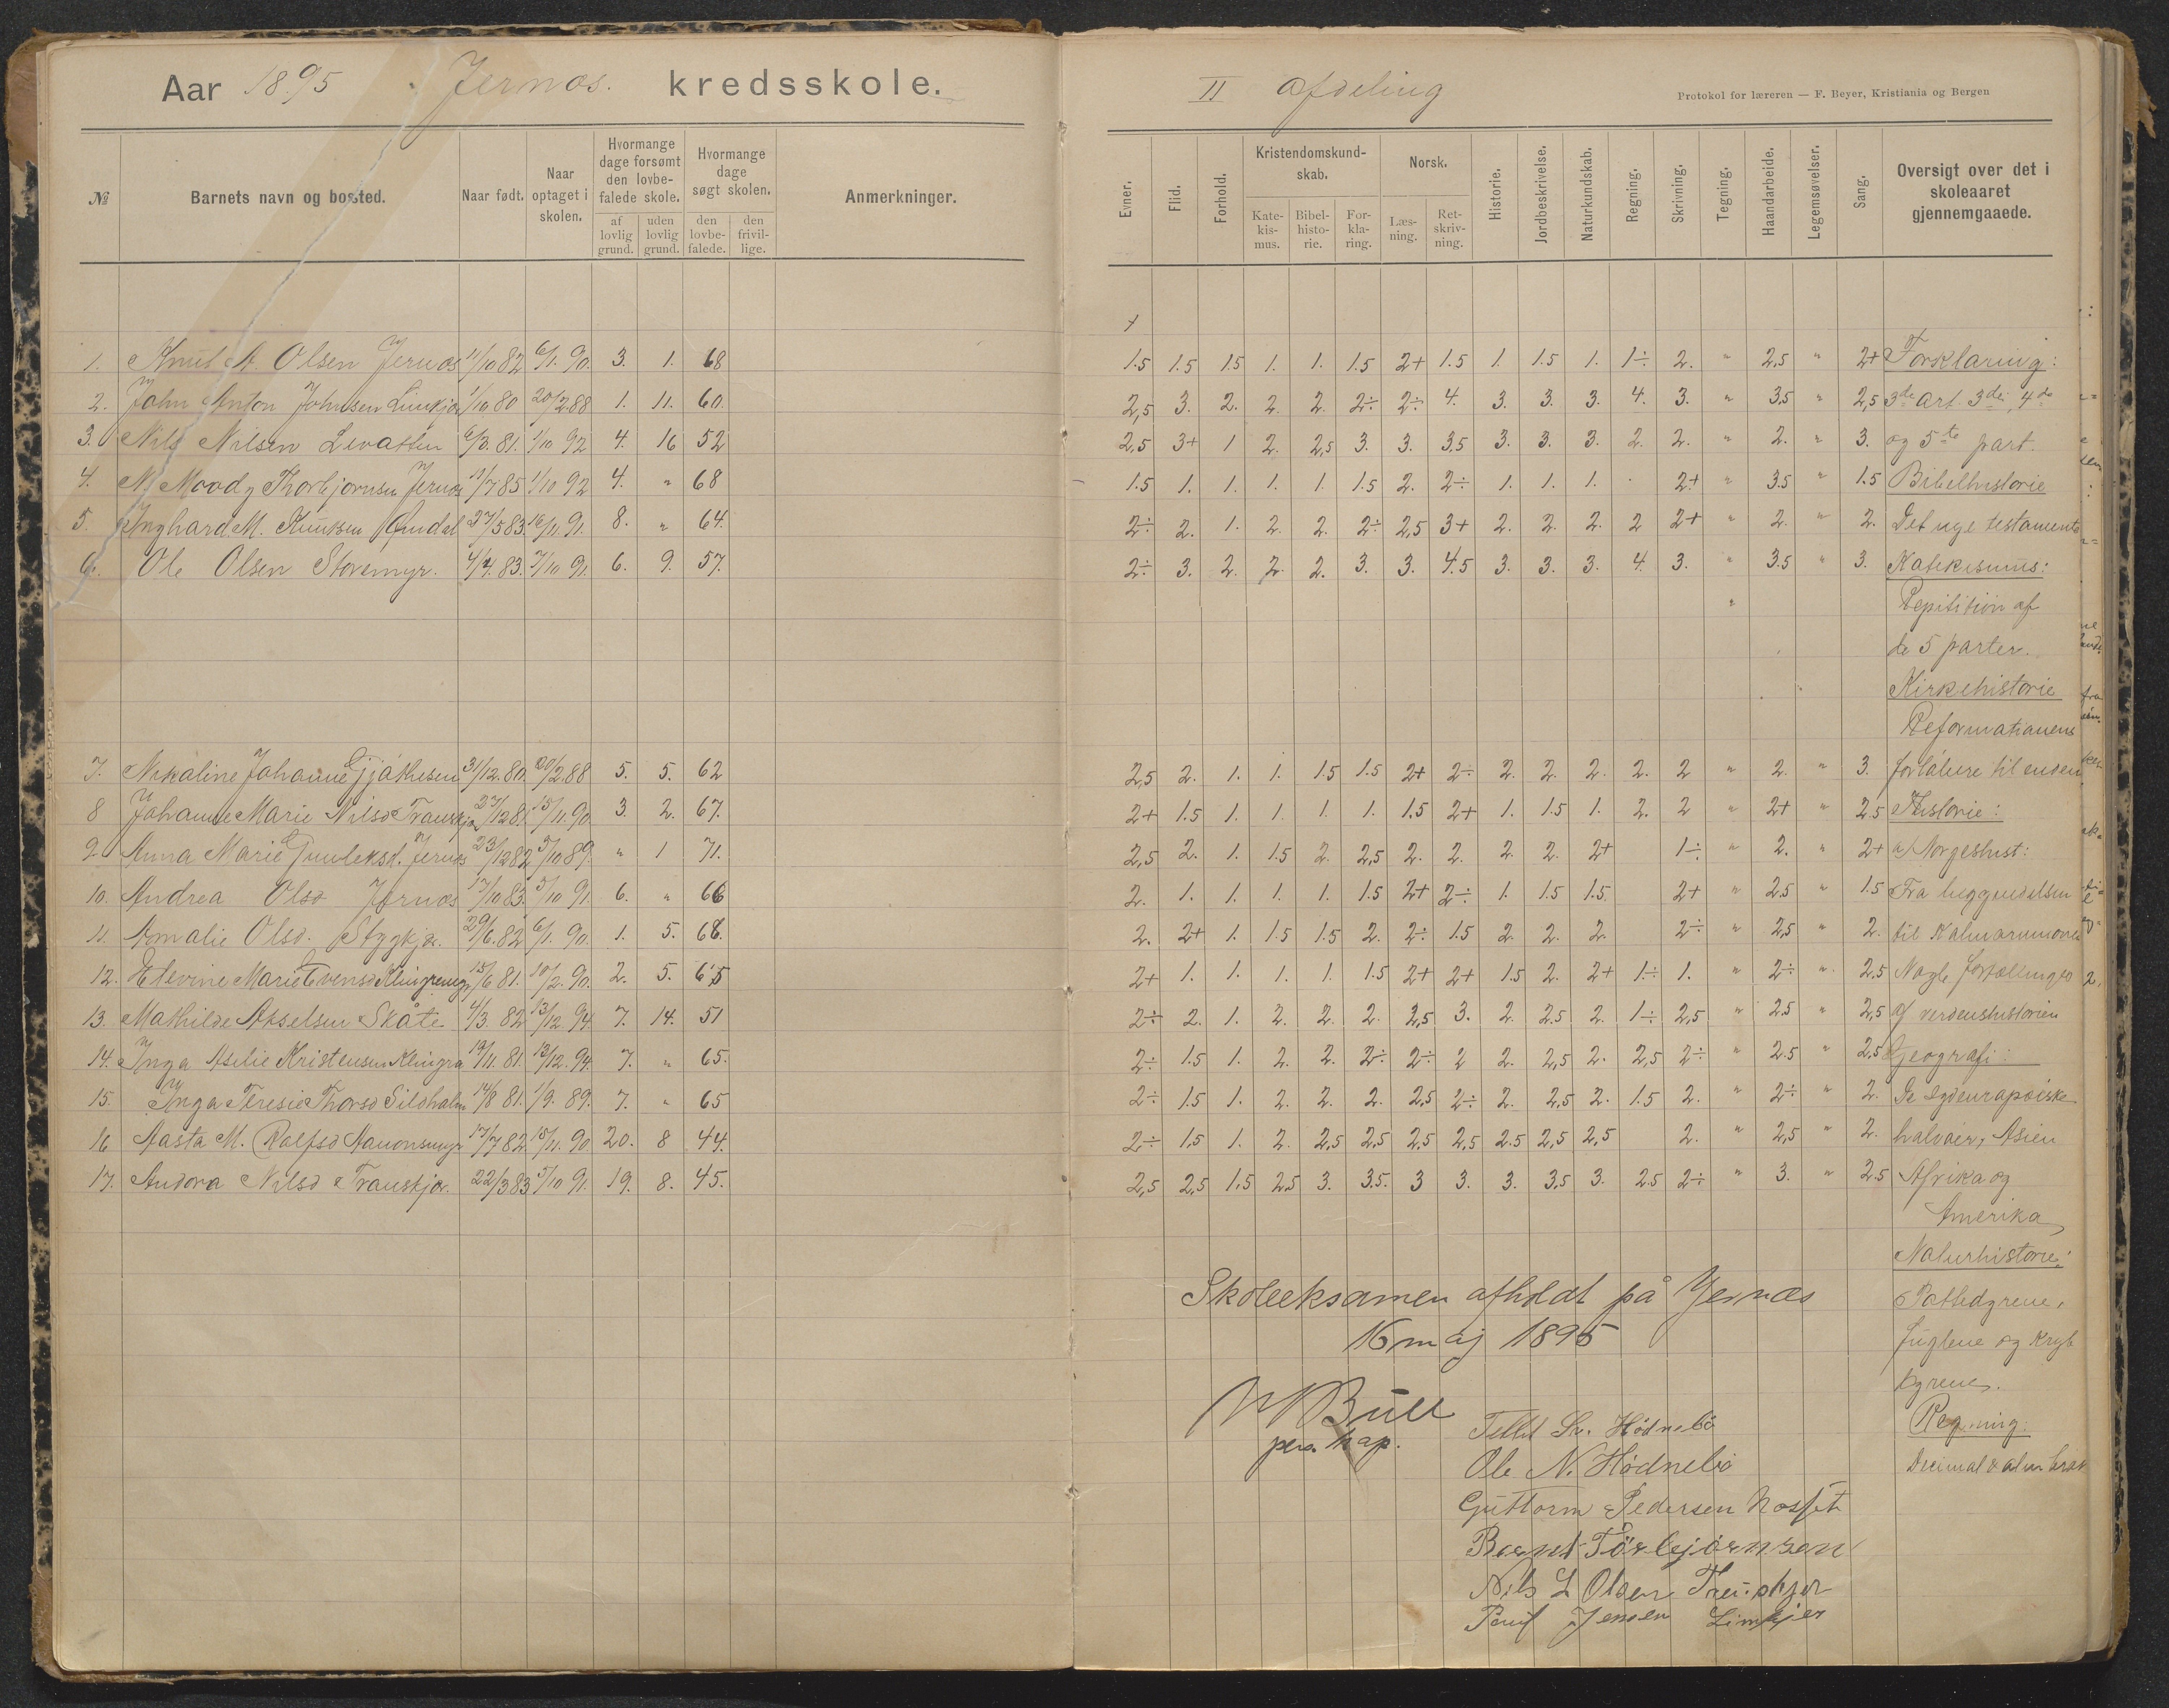 Aar 1895 Jernæs. kredsskole.
№ Barnets navn og bosted. Naar født. Naar optaget i skolen. Hvormange dage forsømt den lovbefalede skole. af lovlig grund. uden lovlig grund. Hvormange dage søgt skolen. den lovbefalede. den frivillige. Anmerkninger.
1. Knut A. Olsen Jernæs 11/10 82 6/1. 90. 3. 1. 68
2. John Anton Johnsen Limkjær 1/10 80 20/2 88 1. 11. 60
3. Nils Nilsen 6/3. 81. 1/10 92 4. 16 52
4. M. Moody Thorbjørnsen Jernæs 11/7 85 1/10 92 4. " 68
5. Inghard M. Knutsen 27/5 83. 16/11. 91. 8. " 64.
6. Ole Olsen Storemyr. 4/4. 83. 7/10 91. 6. 9. 57.
7. Nikaline Johanne 31/12. 80. 20/2. 88 5. 5. 62
8 Johanne Marie Nilsd Trauskjær 27/12 81. 15/11. 90. 3. 2. 67.
9. Anna Marie Gunleksd. Jernæs 23/12 82 5/10 89. " 1 71.
10. Andrea Olsd Jernæs 17/10 83. 5/10 91 6. " 66
11. Amalie Olsd. Stygkjær. 29/6. 82 6/1. 90. 1. 5. 68.
12. Elevine Marie Evensd 15/6 81. 10/2. 90. 2. 5. 65
13. Mathilde Akselsen Skåte 4/3. 82 13/12. 94. 7. 14. 51
14. Inga Aselie Kristensen 19/11. 81. 13/12. 94. 7. " 65.
15. Inga Teresie Thorsd Sildholm 14/8 81. 1/9. 89. 7. " 65
16 Aasta M. Rolfsd 17/7 82. 15/11. 90. 20. 8 44.
17. Andora Nilsd Trauskjær. 22/3 83. 5/10 91. 19. 8. 45.
II afdeling
Protokol for læreren — F. Beyer, Kristiania og Bergen
Evner. Flid. Forhold. Kristendomskundskab. Katekismus. Bibelhistorie. Forklaring. Norsk. Læsning. Retskrivning. Historie. Jordbeskrivelse. Naturkundskab. Regning. Skrivning. Tegning. Haandarbeide. Legemsøvelser. Sang. Oversigt over det i skoleaaret gjennemgaaede.
1.5 1.5 1.5 1. 1. 1.5 2+ 1.5 1. 1.5 1. 1÷ 2. " 2,5 " 2+ Forklaring:
2,5 3. 2. 2. 2. 2÷ 2÷ 4. 3. 3. 3. 4. 3. " 3.5 " 2,5 3de art. 3die, 4de
2,5 3+ 1 2. 2,5 3. 3. 3,5 3. 3. 3. 2. 2. " 2. " 3. og 5te part.
1.5 1. 1. 1. 1. 1.5 2. 2÷ 1. 1. 1. 2+ " 3.5 " 1.5 Bibelhistorie
2÷ 2. 1. 2. 2. 2÷ 2,5 3+ 2. 2. 2. 2 2+ " 2. " 2. Det nye testamente
2÷ 3. 2. 2. 2. 3. 3. 4.5 3. 3. 3. 4. 3. " 3.5 " 3. Katekismus:
Repitition af
de 5 parter.
Kirkehistorie
Reformationens
2,5 2. 1. 1. 1.5 1.5 2+ 2÷ 2. 2. 2. 2. 2 " 2. " 3. forløbere til enden
2+ 1.5 1. 1. 1. 1. 1.5 2+ 1. 1.5 1. 2. 2 " 2+ " 2.5 Historie:
2,5 2. 1. 1.5 2. 2,5 2. 2. 2. 2. 2+ 1÷ " 2. " 2+ a/ Norgeshist:
2. 1. 1. 1. 1. 1.5 2+ 2÷ 1. 1.5 1.5. 2+ " 2.5 " 1.5 Fra begyndelsen
2. 2+ 1. 1.5 1.5 2. 2÷ 1.5 2. 2. 2. 2÷ " 2,5 " 2. til Kalmarunionen
2+ 1. 1. 1. 1. 1.5 2+ 2+ 1.5 2. 2+ 1÷ 1. " 2÷ " 2,5 Nogle fortællinger
2÷ 2. 1. 2. 2. 2. 2,5 3. 2. 2.5 2. 1÷ 2,5 " 2.5 " 2,5 af verdenshistorien
2÷ 1.5 1. 2. 2. 2÷ 2÷ 2 2. 2,5 2. 2,5 2÷ " 2.5 " 2,5 Geografi:
2÷ 1.5 1. 2. 2. 2. 2,5 2÷ 2. 2,5 2. 1.5 2. " 2÷ " 2. De sydeuropæiske
2÷ 1.5 1. 2. 2,5 2,5 2,5 2,5 2.5 2,5 2,5 2. " 2,5 " 2. halvøer, Asien
2,5 2,5 1.5 2.5 3. 3.5. 3 3. 3. 3,5 3. 2.5 2÷ " 3. " 2.5 Afrika og
Amerika
Naturhistorie:
Pattedyrene,
fuglene og kryb
dyrene.
Regning:
Decimal & alm. brøk
Skoleeksamen afholdt på Jernæs
16 maj 1895
Bull
pers. kap.
Tellef Hødnebø
Ole N. Hødnebø
Guttorm Pedersen
Bernt Törbjörnsen
Nils L Olsen
Poul Jensen Limkjær